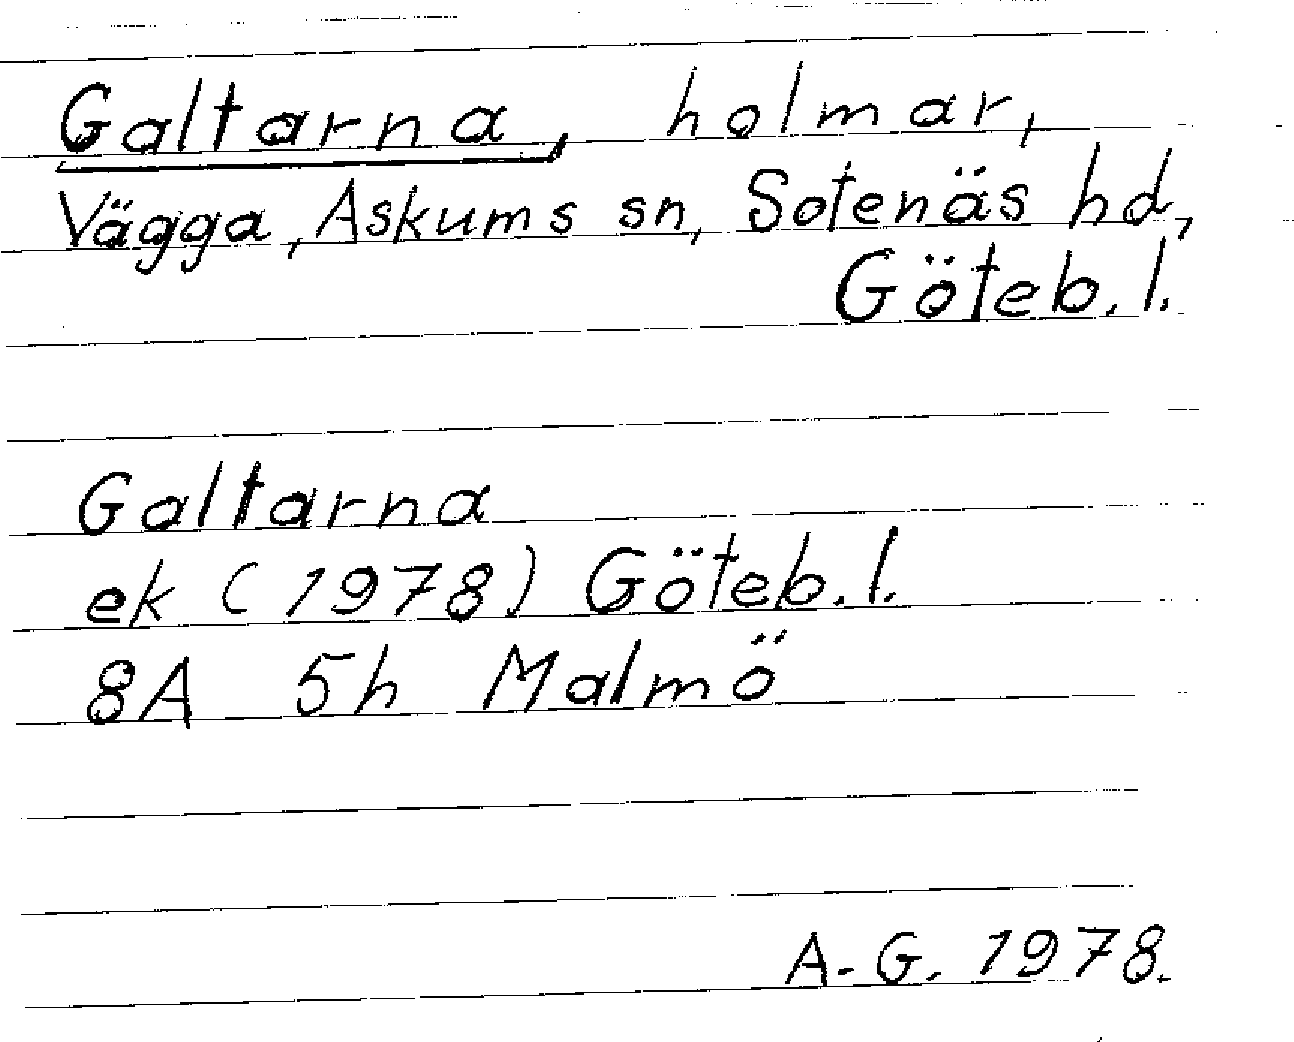 Galtarna, holmar,
Vägga, Askums sn, Sotenäs hd,
Göteb. l.
Galtarna
ek (1978) Göteb. l.
8A 5h Malmö
A-G. 1978.